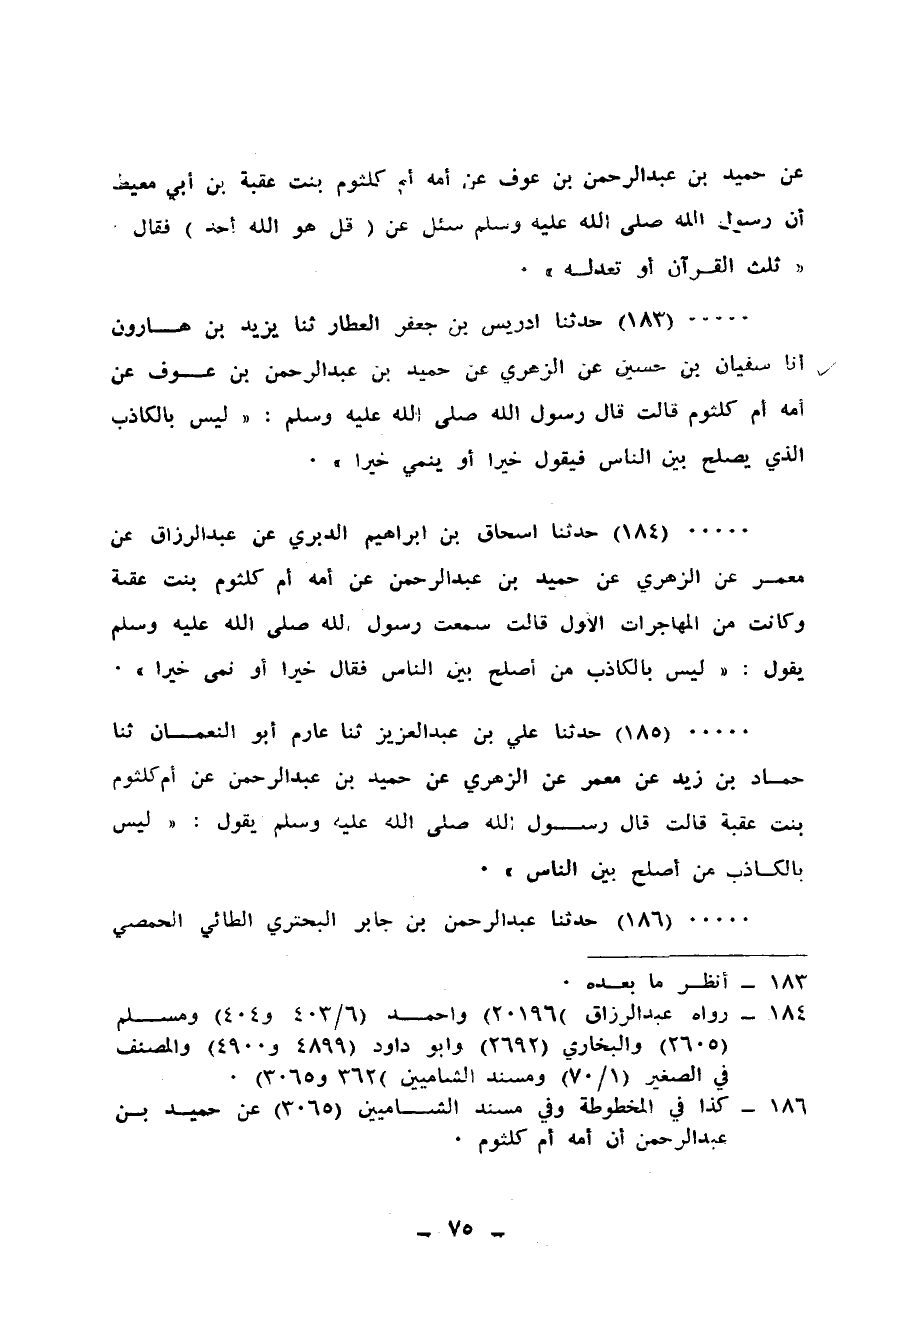 عن حميد بن عبدالرحمن بن عوف عن أمه أم كلثوم بنت عقبة بن أبي معيط
أن رسول الله صلى الله عليه وسلم سئل عن ( قل هو الله أحد ) فقال
« ثلث القـرآن أو تعدلـه » ٠
٠٠٠٠٠ (١٨٣) حدثنا ادريس بن جعفر العطار ثنا يزيد بن هـــارون
أنا سفيان بن حسين عن الزهري عن حميد بن عبدالرحمن بن عـــوف عن
أمه أم كلثوم قالت قال رسول الله صلى الله عليه وسلم : « ليس بالكاذب
الذي يصلح بين الناس فيقول خيرا أو ينمي خيرا » ٠
٠٠٠٠٠ (١٨٤) حدثنا اسحاق بن ابراهيم الدبري عن عبدالرزاق عن
معمـر عن الزهري عن حميد بن عبدالرحمن عن أمه أم كلثوم بنت عقبة
وكانت من المهاجرات الأول قالت سمعت رسول الله صلى الله عليه وسلم
يقول : « ليس بالكاذب من أصلح بين الناس فقال خيرا أو نمى خيرا » ٠
٠٠٠٠٠ (١٨٥) حدثنا علي بن عبدالعزيز ثنا عارم أبو النعمــان ثنا
حمــاد بن زيد عن معمر عن الزهري عن حميد بن عبدالرحمن عن أم كلثوم
بنت عقبة قالت قال رســول الله صلى الله عليه وسلم يقول : « ليس
بالكــاذب من أصلح بين الناس » ٠
٠٠٠٠٠ (١٨٦) حدثنا عبدالرحمن بن جابر البحتري الطائي الحمصي
١٨٣ ـ أنظـر ما بعـده ٠
١٨٤ ـ رواه عبدالرزاق )٢٠١٩٦) واحمــد (٤٠٣/٦ و٤٠٤) ومســلم
(٢٦٠٥) والبخاري (٢٦٩٢) وابو داود (٤٨٩٩ و٤٩٠٠) والمصنف
في الصغير (٧٠/١) ومسند الشاميين )٣٦٢ و٣٠٦٥) ٠
١٨٦ ـ كذا في المخطوطة وفي مسند الشــاميين (٣٠٦٥) عن حميــد بــن
عبدالرحمن أن أمه أم كلثوم ٠
ـ ٧٥ ـ